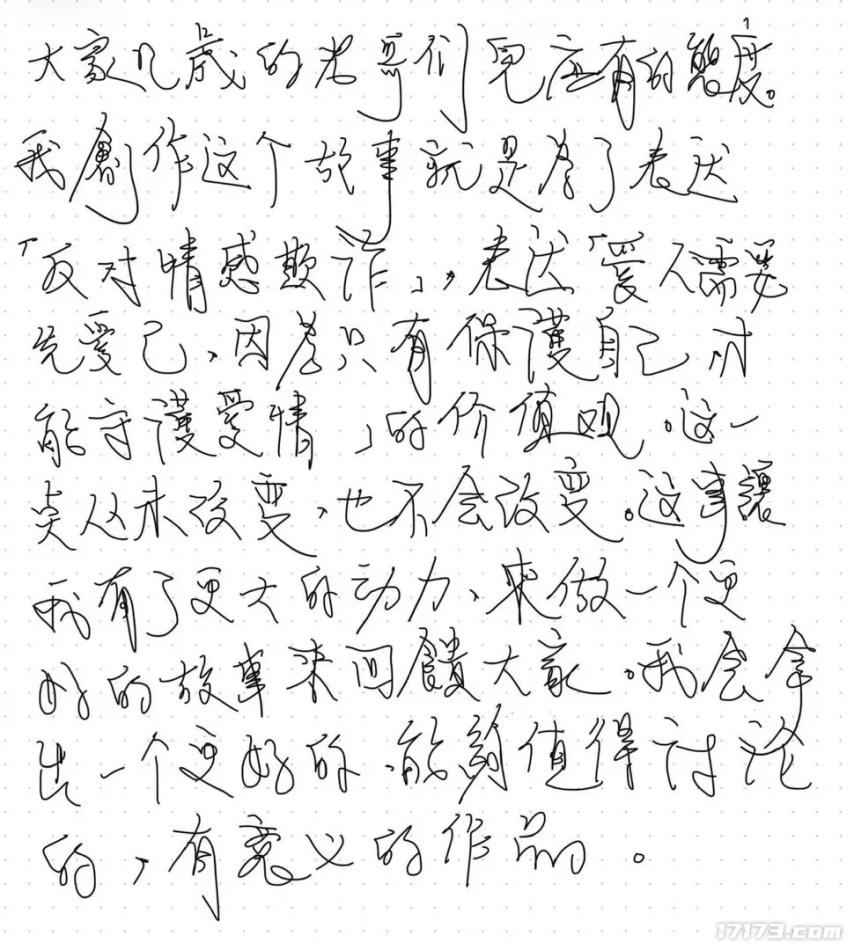 大家几歲的老哥们兒应有的態度。
我創作这个故事就是為了表达
「反对情感欺诈」,表达「愛人需要
先愛己,因為只有保護自己才
能守護愛情」的价值观。这一
点从未改变,也不会改变。这事讓
我有了更大的动力、來做一个更
好的故事來回饋大家。我会拿
出一个更好的、能夠值得讨论
的,有意义的作品。
17173.com